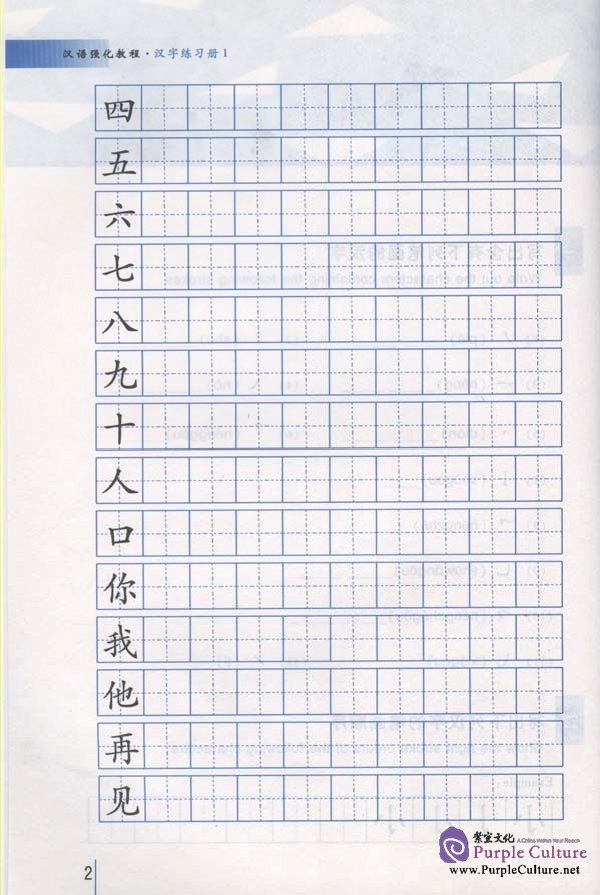 汉语强化教程·汉字练习册1
四
五
六
七
八
九
十
人
口
你
我
他
再
见
2
紫宝文化 A China Within Your Reach
Purple Culture
www.PurpleCulture.net